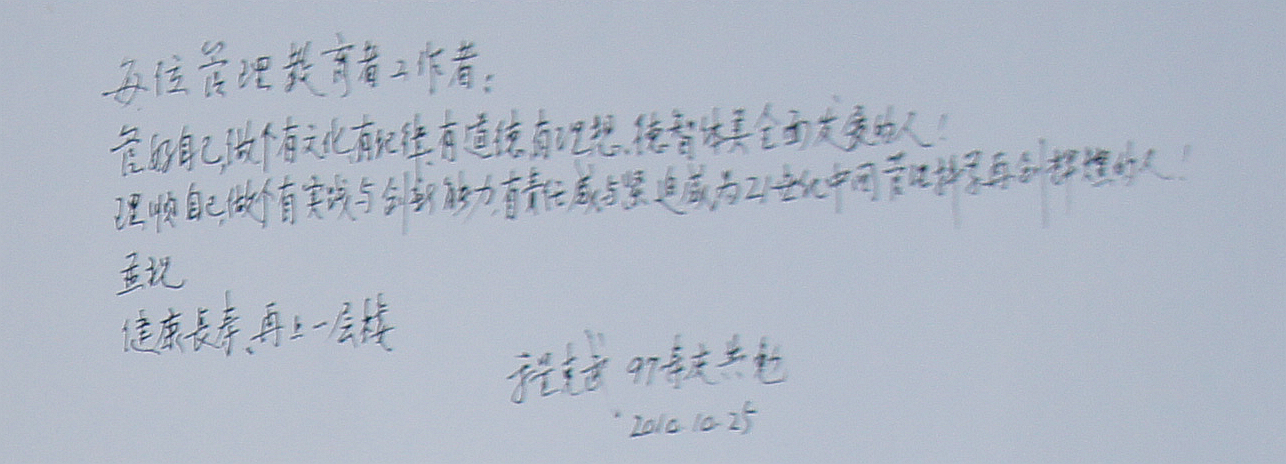 每位管理教育者工作者：
管好自己，做个有文化有纪律、有道德、有理想、德智体美全面发展的人！
理顺自己，做个有实践与创新能力，有责任感与紧迫感为21世纪中国管理科学再创辉煌的人！
并祝
健康长寿、再上一层楼
程克武 97寿庆共勉
2010.10.25